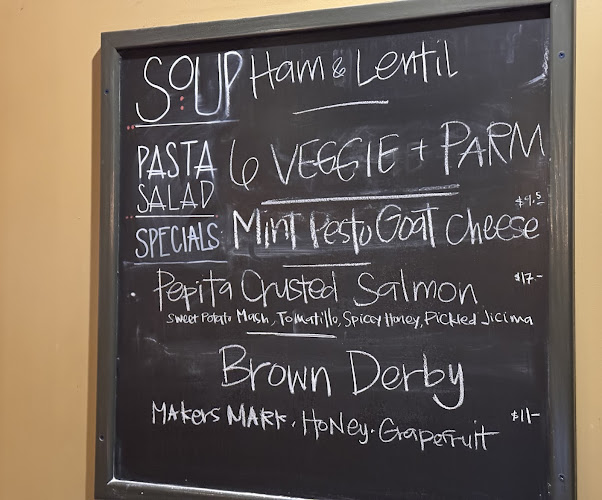 SOUP Ham & Lentil
PASTA SALAD 6 VEGGIE + PARM
SPECIALS Mint Pesto Goat Cheese $9.5
Pepita Crusted Salmon $17.-
Sweet Potato Mash, Tomatillo, Spiccy Honey, Pickled Jicima
Brown Derby
MAKers MARK. HoNey. GrApeFruit $11-